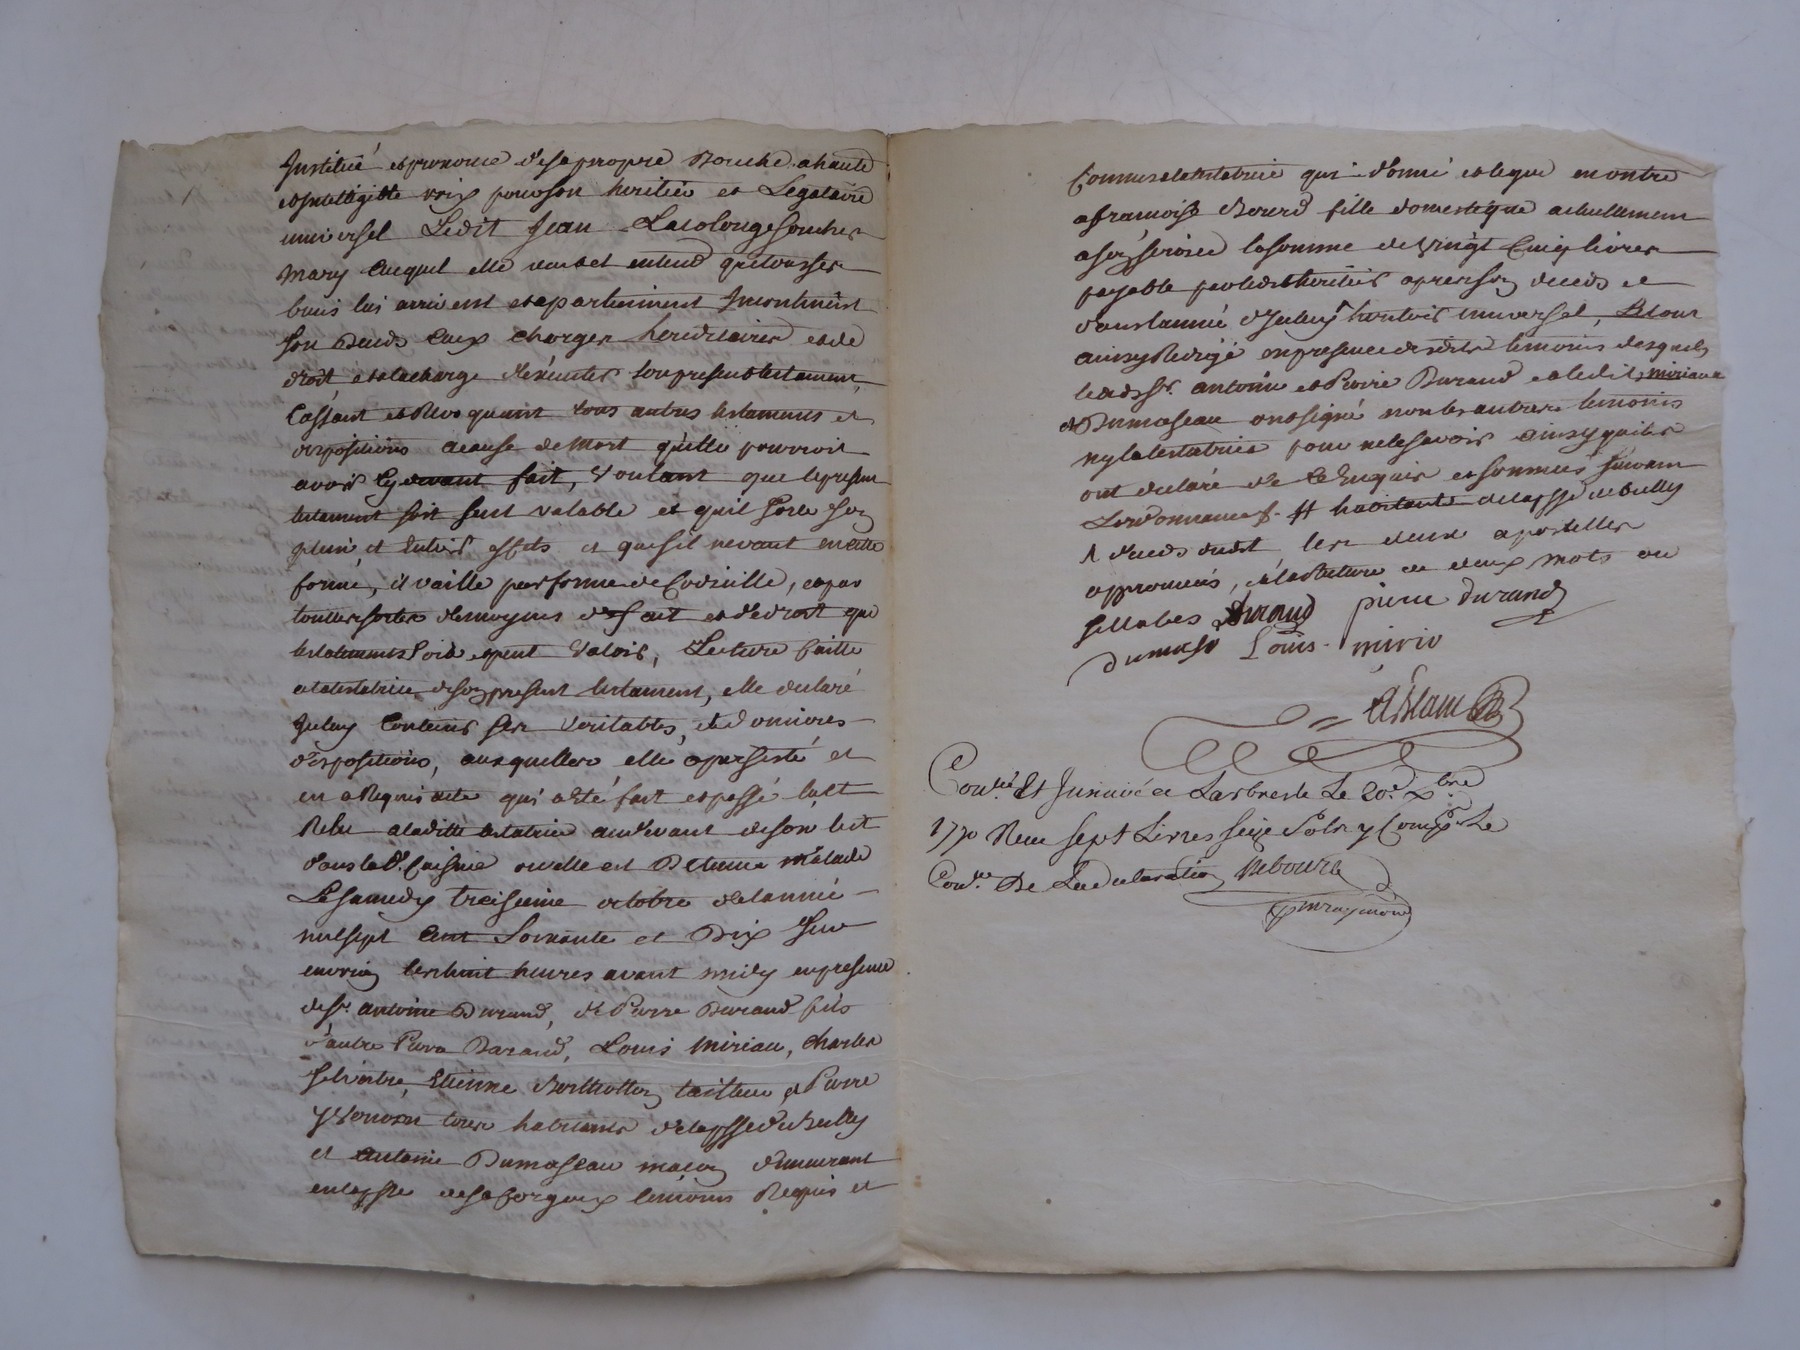 Institué et prononcé de sa propre Bouche a haute
et Intelligible voix pour son heritier et Legataire
universel Ledit Jean Lacolonge son cher
Mary auquel elle veut et entend que tous ses
biens lui arrivent et apartiennent Incontinent
son Deceds aux charges hereditaires et de
droit et a la charge d'executer son present testament,
Cassant et Revoquant tous autres testaments et
dispositions a cause de mort qu'elle pourroit
avoir cy devant fait, Voulant que le present
testament soit seul valable et qu'il sorte son
plein et Entier effets et que s'il ne vaut en cette
forme, il vaille par forme de Codicille, et par
toutes sortes de moyens de fait et de droit que
testaments Doit et peut Valoir, Lecture faitte
a la testatrice de son present testament, elle declaré
Icelluy Contenir ses veritables, et dernieres
dispositions, auxquelles elle a persisté et
en a Requis acte qui a Eté fait et passé Lu et
Relu a la ditte testatrice au devant de son lict
dans la de. Cuisine ou elle est Detenue Malade
Le samedy treizieme octobre de l'année
mil sept Cent Soixante et Dix Sur
environ les huit heures avant midy en presence
de sr. antoine Durand, de Pierre Durand fils
d'autre Pierre Durand, Louis Miriau, charles
Selvintre, Etienne Berthollon tailleur, et Pierre
tous habitants de la psse de Bully
et antoine Dumoseau macon demeurant
en la psse de St forgeux temoins Requis et
Connus a la testatrice qui a donné et legué en outre
a francoise Bourd fille domestique actuellement
a son service la somme de vingt Cinq livres
payable par ledit heritier apres son deceds et
dans l'année d'Iceluy heritier universel, Et tout
ainsy Redigé en presence desdits temoins desquels
lesds. srs. antoine et Pierre Durand et ledit Miriau
et Dumoseau ont signé non les autres temoins
ny la testatrice pour ne le scavoir ainsy qu'ils
ont declaré de ce Enquis et sommés suivant
L'ordonnance. # habitante de la psse de Bully
deceds dudit les deux apostilles
approuvés, et la Rature de deux mots ou
sillabes Durand pierre durand
dumosô Louis mirio
Conlé. Et Insinué a Larbresle Le 20e. xbre
1770 Reçu sept Livres seize sols y Compris Le
Conle. De La declaration Reboure